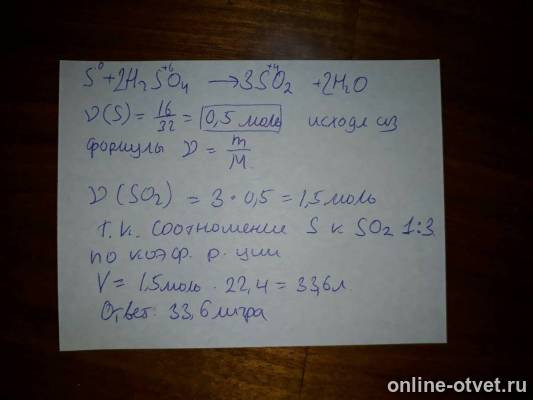 S⁰ + 2H₂S⁺⁶O₄ → 3S⁺⁴O₂ + 2H₂O
ν(S) = 16/32 = 0,5 моль исходя из
формулы ν = m/M.
ν(SO₂) = 3 · 0,5 = 1,5 моль
т.к. соотношение S к SO₂ 1:3
по коэф. р-ции
V = 1,5 моль · 22,4 = 33,6 л.
Ответ: 33,6 литра
online-otvet.ru